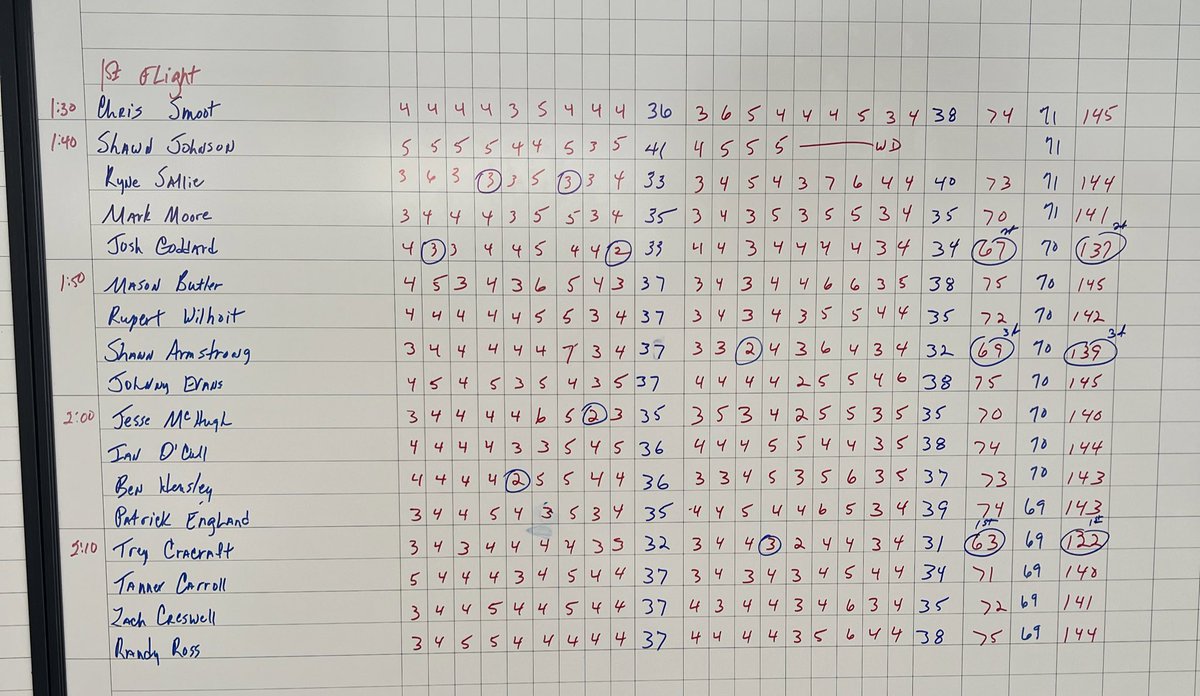 1st Flight
1:30 Chris Smoot 4 4 4 4 3 5 4 4 4 36 3 6 5 4 4 4 5 3 4 38 74 71 145
1:40 Shawn Johnson 5 5 5 5 4 4 5 3 5 41 4 5 5 5 WD 71
Ryne Sallie 3 6 3 3 3 5 3 3 4 33 3 4 5 4 3 7 6 4 4 40 73 71 144
Mark Moore 3 4 4 4 3 5 5 3 4 35 3 4 3 5 3 5 5 3 4 35 70 71 141
Josh Goddard 4 3 3 4 4 5 4 4 2 33 4 4 3 4 4 4 4 3 4 34 67 70 137
1:50 Mason Butler 4 5 3 4 3 6 5 4 3 37 3 4 3 4 4 6 6 3 5 38 75 70 145
Rupert Wilhoit 4 4 4 4 4 5 5 3 4 37 3 4 3 4 3 5 5 4 4 35 72 70 142
Shawn Armstrong 3 4 4 4 4 4 7 3 4 37 3 3 2 4 3 6 4 3 4 32 69 3rd 70 139 3rd
Johnny Evans 4 5 4 5 3 5 4 3 5 37 4 4 4 4 2 5 5 4 6 38 75 70 145
2:00 Jesse McHugh 3 4 4 4 4 6 5 2 3 35 3 5 3 4 2 5 5 3 5 35 70 70 140
Ian O'Cull 4 4 4 4 3 3 5 4 5 36 4 4 4 5 5 4 4 3 5 38 74 70 144
Ben Hensley 4 4 4 4 2 5 5 4 4 36 3 3 4 5 3 5 6 3 5 37 73 70 143
Patrick England 3 4 4 5 4 3 5 3 4 35 4 4 5 4 4 6 5 3 4 39 74 69 143
2:10 Trey Cracraft 3 4 3 4 4 4 4 3 3 32 3 4 4 3 2 4 4 3 4 31 63 1st 69 132 1st
Tanner Carroll 5 4 4 4 3 4 5 4 4 37 3 4 3 4 3 4 5 4 4 34 71 69 140
Zach Creswell 3 4 4 5 4 4 5 4 4 37 4 3 4 4 3 4 6 3 4 35 72 69 141
Randy Ross 3 4 5 5 4 4 4 4 4 37 4 4 4 4 3 5 6 4 4 38 75 69 144